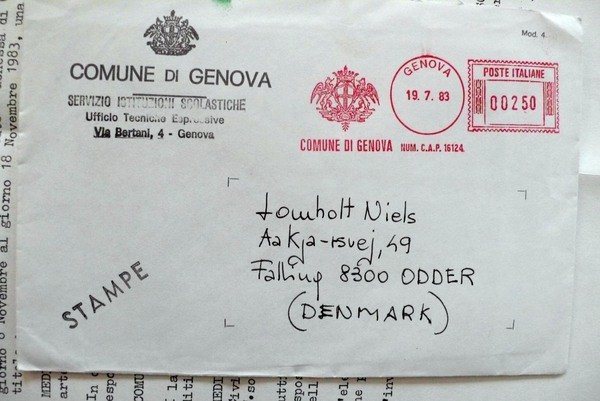 Mod. 4
COMUNE DI GENOVA
SERVIZIO ISTITUZIONI SCOLASTICHE
Ufficio Tecniche Espressive
Via Bertani, 4 - Genova
GENOVA
19. 7. 83
POSTE ITALIANE
00250
COMUNE DI GENOVA NUM. C.A.P. 16124.
Lomholt Niels
Aakja-rsvej, 49
Falling 8300 ODDER
(DENMARK)
STAMPE
giorno 8 Novembre al giorno 18 Novembre 1983, una